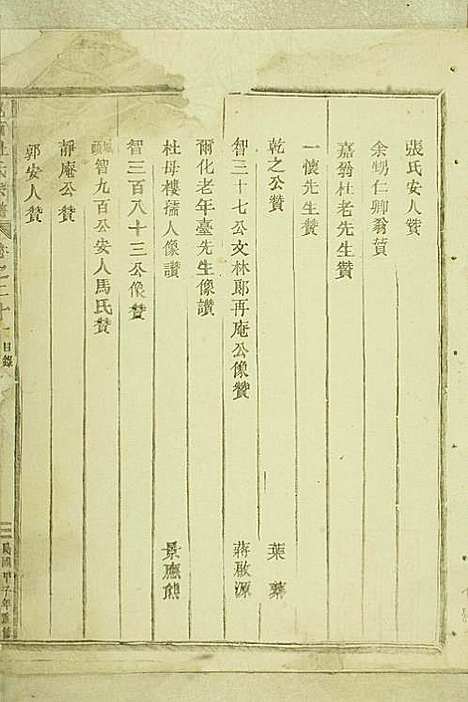 張氏安人贊
余甥仁卿翁贊
嘉翁杜老先生贊
一懷先生贊
乾之公贊 葉蓁
智三十七公文林郎再庵公像贊 蔣啟源
爾化老年臺先生像讚
杜母樓孺人像讚 景應熊
智三百八十三公像贊
智九百公安人馬氏贊
靜庵公贊
郭安人贊
杜氏宗譜 卷之二十一 目錄 三 民國甲子年重修